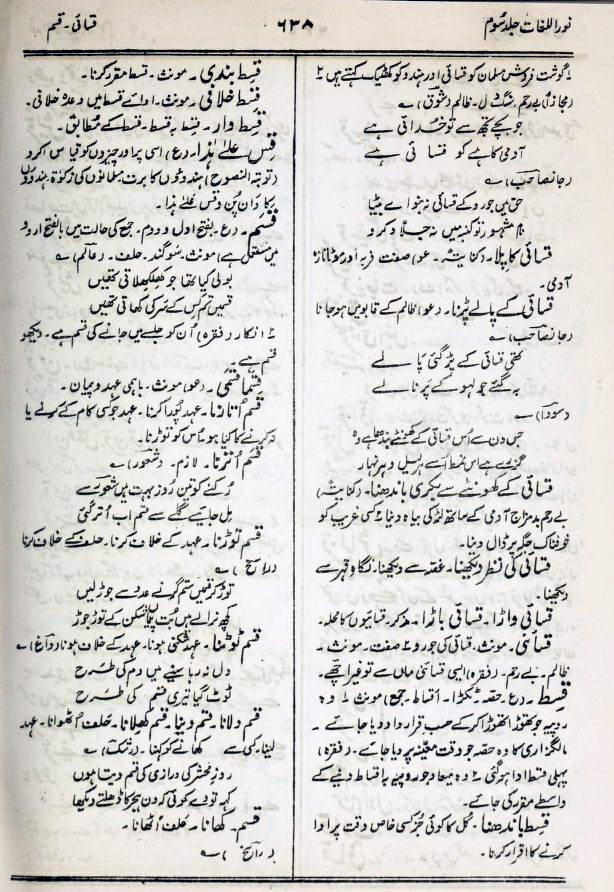 نور اللغات جلد سوم
۶۳۸
قسائی - قسم
۱ گوشت فروش مسلمان کو قسائی اور ہندو کو کھٹیک کہتے ہیں ۲
(مجازاً) بے رحم، سنگ دل - ظالم (شوق) ؎
جو بچے تجھ سے تو خدائی ہے
آدمی کا ہے کو قسائی ہے
(جانصاحب) ؎
حق میں جورو کے قسائی نہ ہو اے بیٹا
نام مشہور تو کنبہ میں نہ جلاد کرو
قسائی کا پلا - (کنایتہً - عو) صفت فربہ اور موٹا تازہ
آدمی -
قسائی کے پالے پڑنا - (عو) ظالم کے قابو میں ہو جانا
(جانصاحب) ؎
تھی قسائی کے پڑ گئی پالے
بہ گئے جو لہو کے پرنالے
(سودا) ؎
جس دن سے اُس قسائی کے کھونٹے بندھا ہے وہ
گزرے ہے اس نمط اُسے ہر لیل و ہر نہار
قسائی کے کھونٹے سے بکری باندھنا - (کنایتہً)
بے رحم بد مزاج آدمی کے ساتھ لڑکی بیاہ دینا ۲ کسی غریب کو
خوفناک جگہ پر ڈال دینا -
قسائی کی نظر دیکھنا - غصہ سے دیکھنا - نگاہ قہر سے
دیکھنا -
قسائی واڑا - قسائی باڑا - مذکر - قسائیوں کا محلہ -
قسائنی - مونث - قسائی کی جورو ۲ صفت - مونث -
ظالم - بے رحم - (فقرہ) ایسی قسائنی ماں سے تو غیر اچھے -
قسط - (ع - حصہ - ٹکڑا - اقساط - جمع) مونث ۱ وہ
روپیہ جو تھوڑا تھوڑا کر کے حسب قرار داد دیا جائے -
مالگزاری کا وہ حصہ جو وقت معینہ پر دیا جائے - (فقرہ)
پہلی قسط ادا ہو گئی ۲ وہ میعاد جو روپیہ بہ اقساط دینے کے
واسطے مقرر کی جائے -
قسط باندھنا - کُل کا کوئی جُز کسی خاص وقت پر ادا
کرنے کا اقرار کرنا -
قسط بندی - مونث - قسط مقرر کرنا -
قسط خلافی - مونث - ادائے قسط میں وعدہ خلافی -
قسط وار - قسط بہ قسط - قسط کے مطابق -
قس علےٰ ہٰذا - (ع) اسی پر اور چیزوں کو قیاس کرو
(توبتہ النصوح) ہندوؤں کا برت مسلمانوں کی زکوٰۃ ہندوؤں
کا دان پن وقس علےٰ ہذا -
قسم - (ع - بفتح اول و دوم - جمع کی حالت میں بالفتح اردو
میں مستعمل ہے) مونث - سوگند - حلف - (عالم) ؎
بولی کیا تھا جو کھلکھلاتی تھیں
قسمیں تم کس کے سر کی کھاتی تھیں
۲ انکار (فقرہ) اُن کو جلسے میں جانے کی قسم ہے - دیکھو
قسم ہے -
قسما قسمی - (عو) مونث - باہمی عہد و پیمان -
قسم اُتارنا - عہد پورا کرنا - عہد جو کسی کام کے کرنے یا
نہ کرنے کا کیا ہو ۲ اُس کو توڑنا -
قسم اُترنا - لازم - (شعور) ؎
رُکنے کو تین روز بہت ہیں شعور سے
مل جایئے گلے سے قسم اب اُتر گئی
قسم توڑنا - عہد کے خلاف کرنا - حلف کے خلاف کرنا
(راسخ) ؎
توڑ کر قسمیں تم گرنے عدو سے جوڑ لیں
کچھ نرالے ہیں بُت پیماں شکن کے توڑ جوڑ
قسم ٹوٹنا - عہد شکنی ہونا - عہد کے خلاف ہونا (داغ) ؎
دل نہ رہا سینے میں دم کی طرح
ٹوٹ گیا تیری قسم کی طرح
قسم دلانا - قسم دینا - قسم کھلانا - حلف اُٹھوانا - عہد
لینا - کسی سے کھانے کو کہنا - (رشک) ؎
روز محشر کی درازی کی قسم دیتا ہوں
کہہ تو دے کوئی کہ دن ہجر کا ڈھلتے دیکھا
قسم - کھانا - حلف اُٹھانا -
(راسخ) ؎